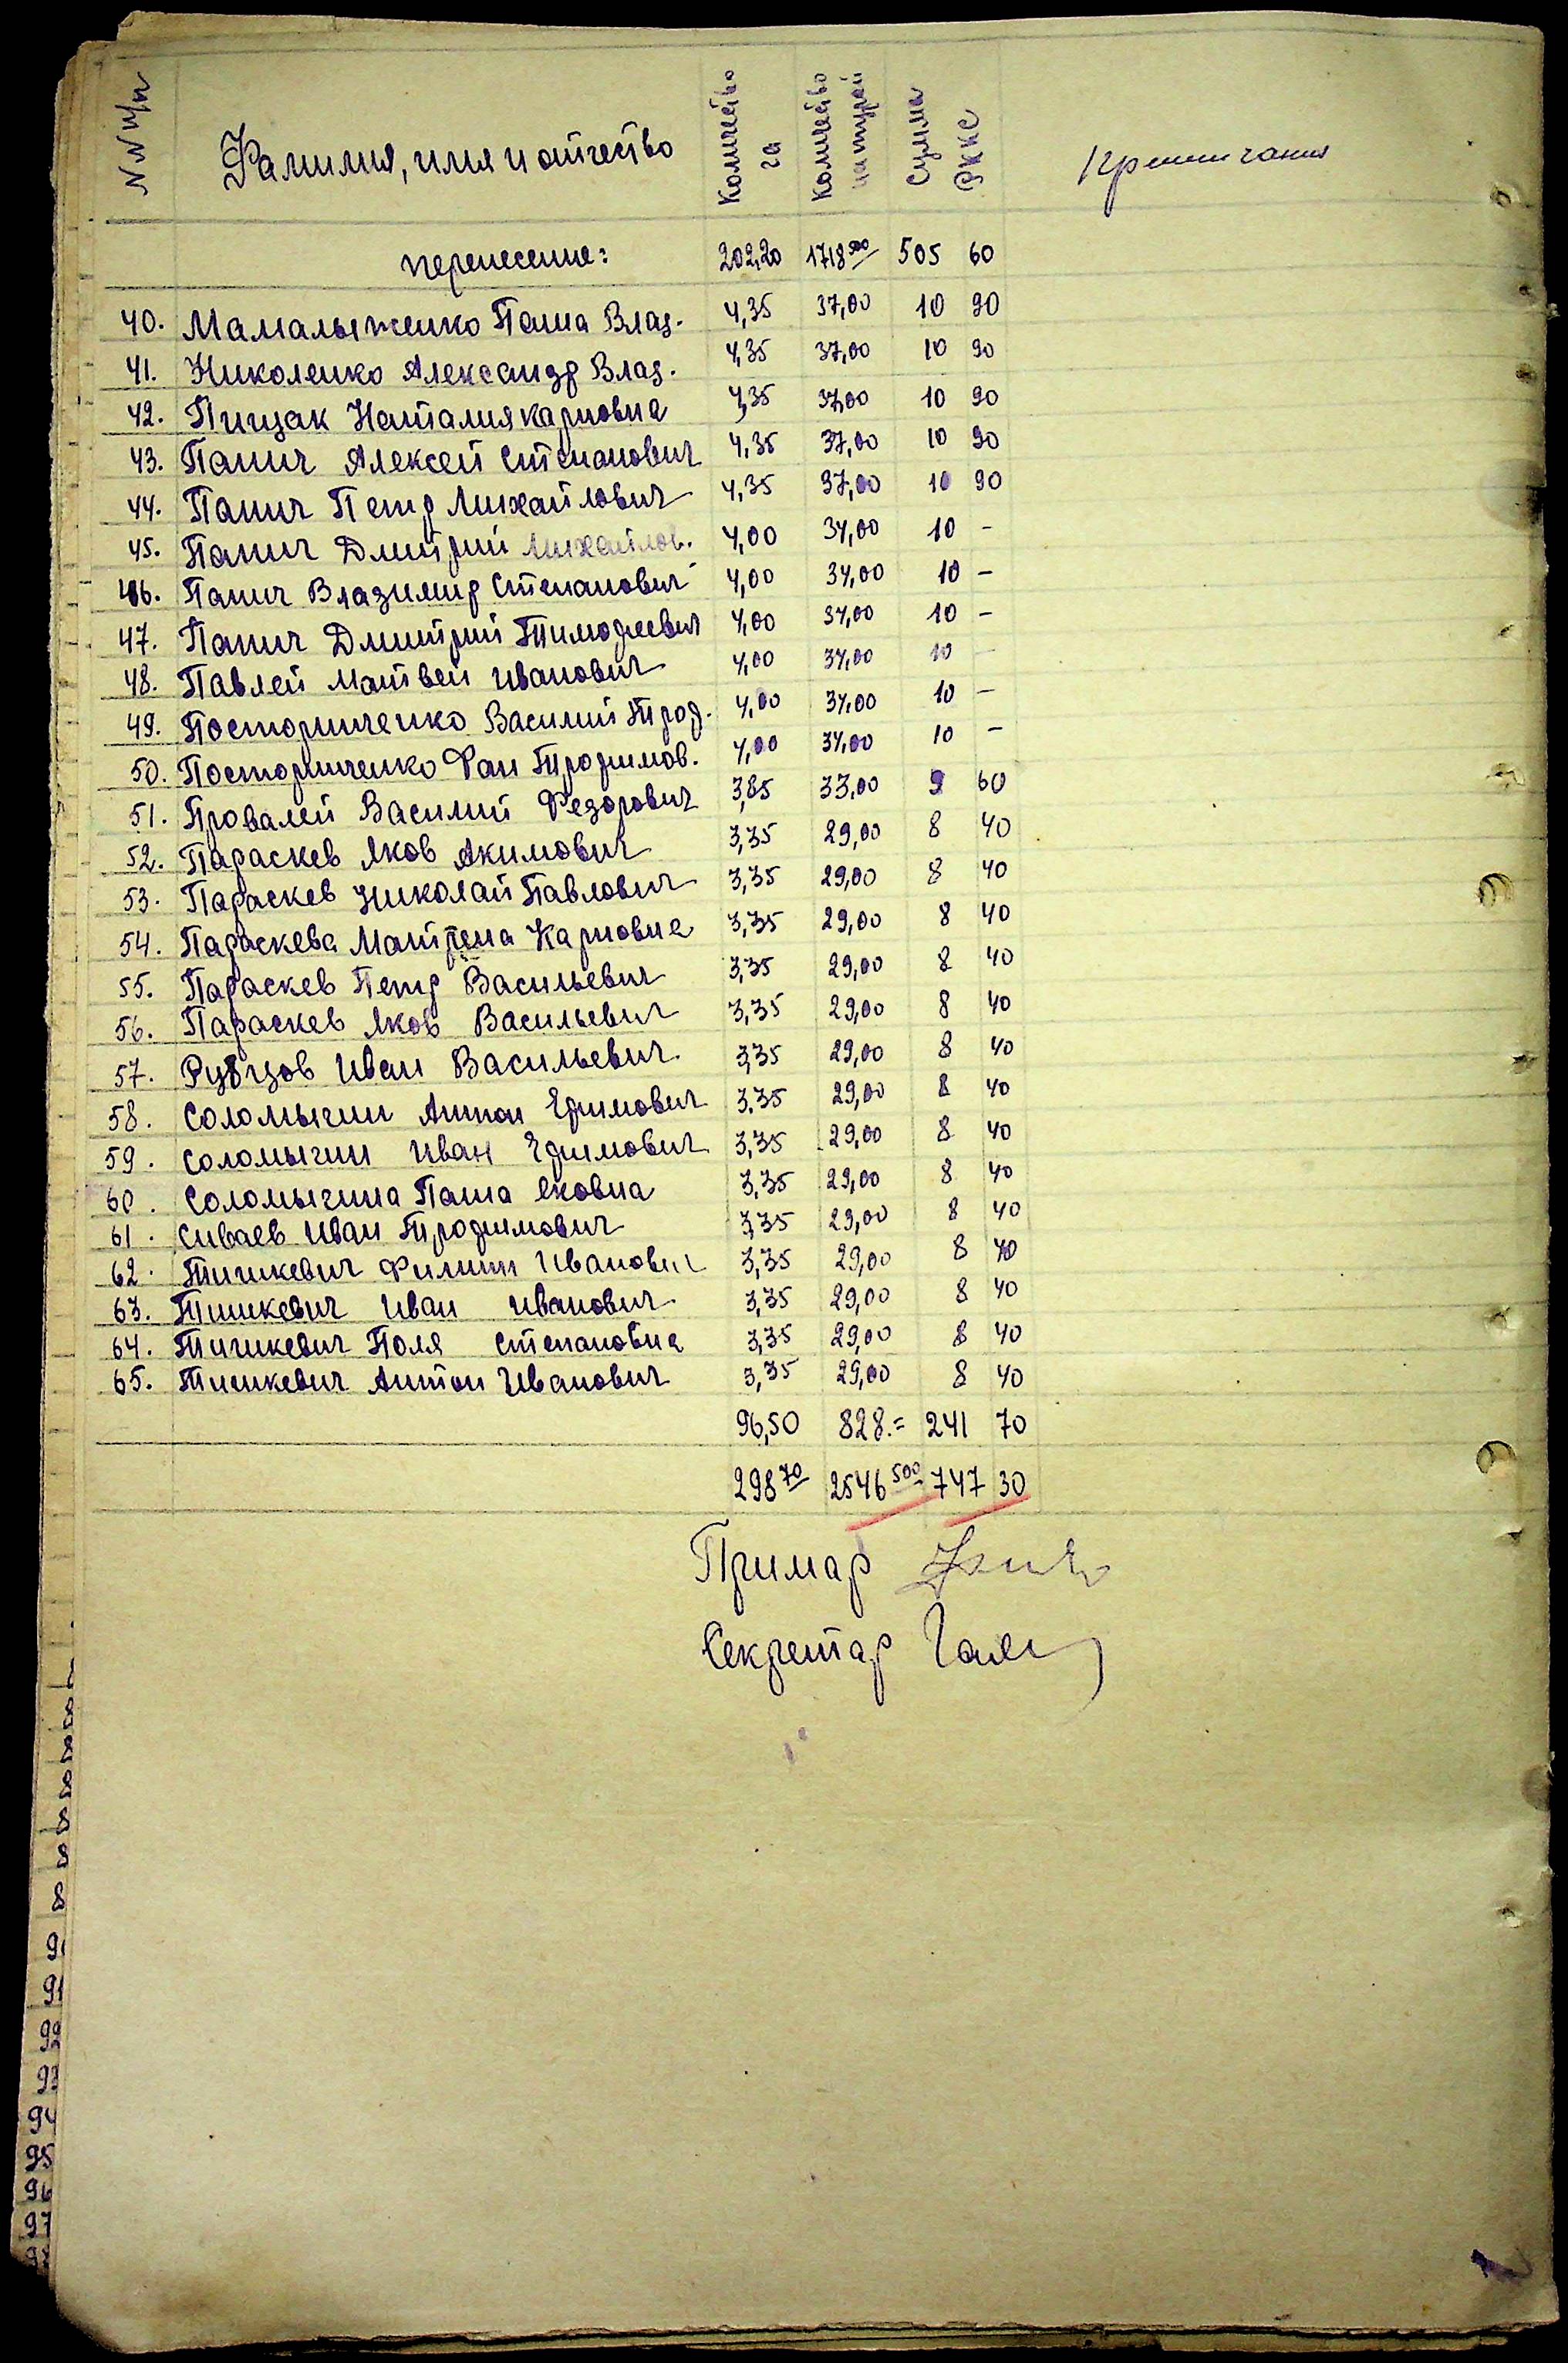 NN п/п Фамилия, имя и отчество Количество га Количество натурой Сумма РККС Примичания
перенесение: 202,20 1718 500 505 60
40. Мамалыженко Паша Влад. 4,35 37,00 10 90
41. Николенко Александр Влад. 4,35 37,00 10 90
42. Пищак Наталия карповна 4,35 37,00 10 90
43. Панич Алексей Степанович 4,35 37,00 10 90
44. Панич Петр Михайлович 4,35 37,00 10 90
45. Панич Дмитрий Михайлов. 4,00 34,00 10 -
46. Панич Владимир Степанович 4,00 34,00 10 -
47. Панич Дмитрий Тимофеевич 4,00 34,00 10 -
48. Павлей Матвей Иванович 4,00 34,00 10 -
49. Посторинченко Василий Троф. 4,00 34,00 10 -
50. Посторинченко Фан Трофимов. 4,00 34,00 10 -
51. Провалей Василий Федорович 3,85 33,00 9 60
52. Параскев Яков Акимович 3,35 29,00 8 40
53. Параскев Николай Павлович 3,35 29,00 8 40
54. Параскева Матрена Карповна 3,35 29,00 8 40
55. Параскев Петр Васильевич 3,35 29,00 8 40
56. Параскев Яков Васильевич 3,35 29,00 8 40
57. Рубцов Иван Васильевич 3,35 29,00 8 40
58. Соломычин Антон Ефимович 3,35 29,00 8 40
59. Соломычин Иван Ефимович 3,35 29,00 8 40
60. Соломычина Паша Яковна 3,35 29,00 8 40
61. Сиваев Иван Трофимович 3,35 29,00 8 40
62. Тишкевич Филипп Иванович 3,35 29,00 8 40
63. Тишкевич Иван Иванович 3,35 29,00 8 40
64. Тишкевич Поля Степановна 3,35 29,00 8 40
65. Тишкевич Антон Иванович 3,35 29,00 8 40
96,50 828.= 241 70
298 70 2546 500 747 30
Примар
Секретар
90
91
92
93
94
95
96
97